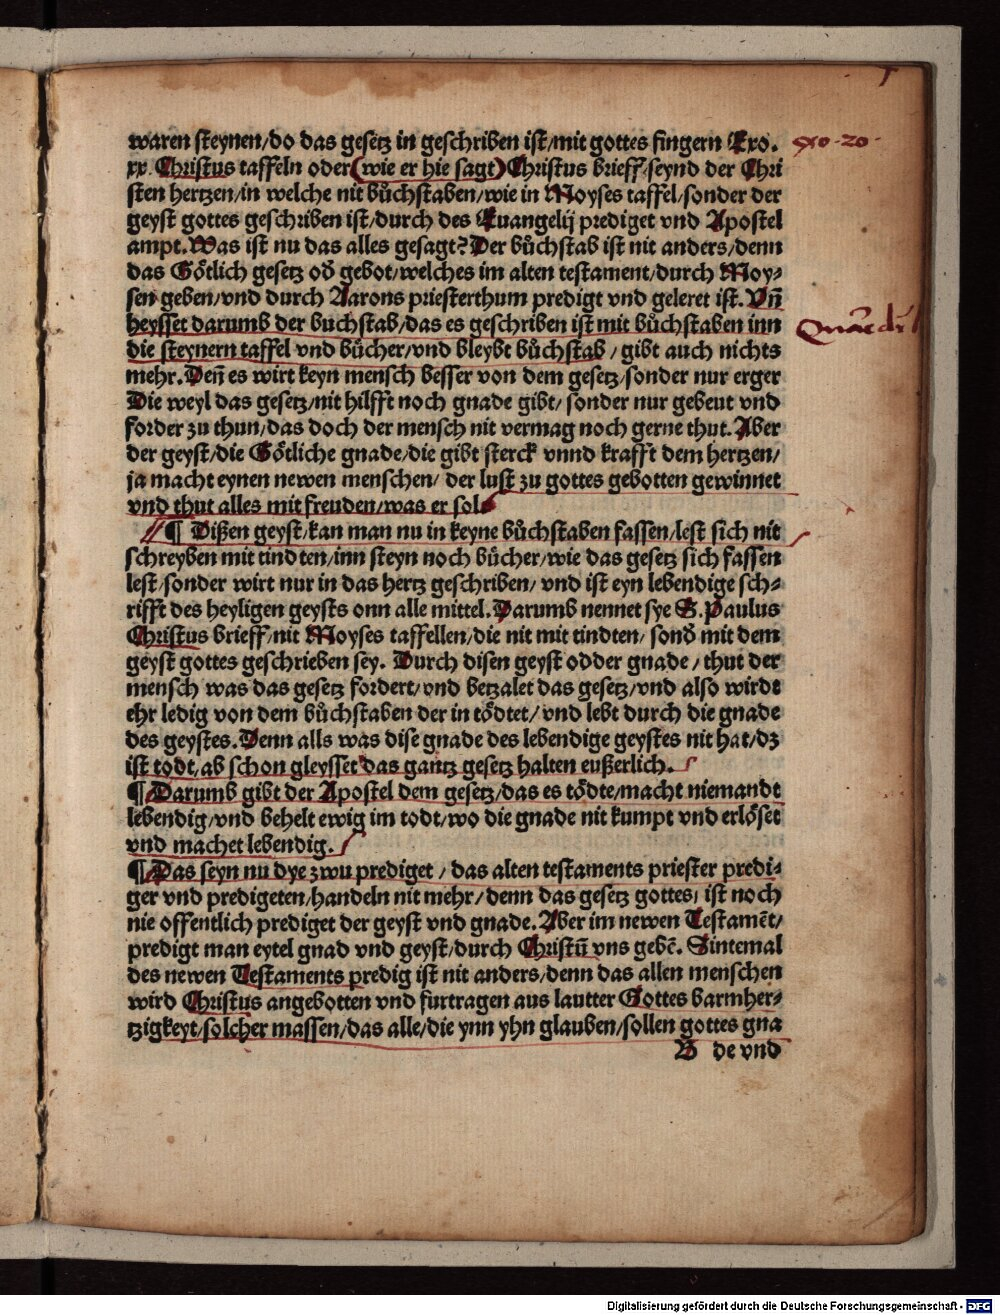 waren steynen/do das gesetz in geschriben ist/mit gottes fingern Exo.
xx. Christus taffeln oder (wie er hie sagt) Christus brieff/seynd der Chri
sten hertzen/in welche nit bůchstaben/wie in Moyses taffel/sonder der
geyst gottes geschriben ist/durch des Euangelij prediget vnd Apostel
ampt. Was ist nu das alles gesagt? Der bůchstab ist nit anders/denn
das Gȏtlich gesetz od̛ gebot/welches im alten testament/durch Moy⸗
sen geben/vnd durch Aarons priesterthum predigt vnd geleret ist. Vn̄
heysset darumb der buchstab/das es geschriben ist mit bůchstaben inn
die steynern taffel vnd bůcher/vnd bleybt bůchstab/gibt auch nichts
mehr. Den̄ es wirt keyn mensch besser von dem gesetz/sonder nur erger
Die weyl das gesetz/nit hilfft noch gnade gibt/sonder nur gebeut vnd
forder zu thun/das doch der mensch nit vermag noch gerne thut. Aber
der geyst/die Gȏtliche gnade/die gibt sterck vnnd krafft dem hertzen/
ja macht eynen newen menschen/der lust zu gottes gebotten gewinnet
vnd thut alles mit freuden/was er sol.
¶ Dißen geyst/kan man nu in keyne bůchstaben fassen/lest sich nit
schreyben mit tindten/inn steyn noch bůcher/wie das gesetz sich fassen
lest/sonder wirt nur in das hertz geschriben/vnd ist eyn lebendige sch⸗
rifft des heyligen geysts onn alle mittel. Darumb nennet sye S. Paulus
Christus brieff/nit Moyses taffellen/die nit mit tindten/sond̛ mit dem
geyst gottes geschrieben sey. Durch disen geyst odder gnade/thut der
mensch was das gesetz fordert/vnd betzalet das gesetz/vnd also wirdt
ehr ledig von dem bůchstaben der in tȏdtet/vnd lebt durch die gnade
des geystes. Denn alls was dise gnade des lebendige geystes nit hat/dz
ist todt/ab schon gleysset das gantz gesetz halten eußerlich.
¶ Darumb gibt der Apostel dem gesetz/das es tȏdte/macht niemandt
lebendig/vnd behelt ewig im todt/wo die gnade nit kumpt vnd erlȏset
vnd machet lebendig.
¶ Das seyn nu dye zwu prediget/das alten testaments priester predi⸗
ger vnd predigeten/handeln nit mehr/denn das gesetz gottes/ist noch
nie offentlich prediget der geyst vnd gnade. Aber im newen Testamēt/
predigt man eytel gnad vnd geyst/durch Christū vns gebē. Sintemal
des newen Testaments predig ist nit anders/denn das allen menschen
wird Christus angebotten vnd furtragen aus lautter Gottes barmher⸗
tzigkeyt/solcher massen/das alle/die ynn yhn glauben/sollen gottes gna
B de vnd
exo·20·
Digitalisierung gefördert durch die Deutsche Forschungsgemeinschaft - DFG